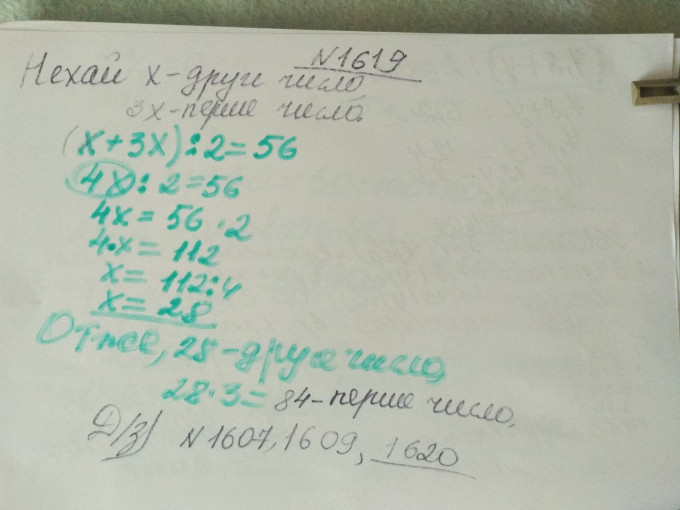 N1619
Нехай х-друге число,
3х-перше число.
(х+3х):2=56
4х:2=56
4х=56·2
4·х=112
х=112:4
х=28
Отже, 28-друге число,
28·3=84-перше число,
Д/з/ N1607,1609, 1620